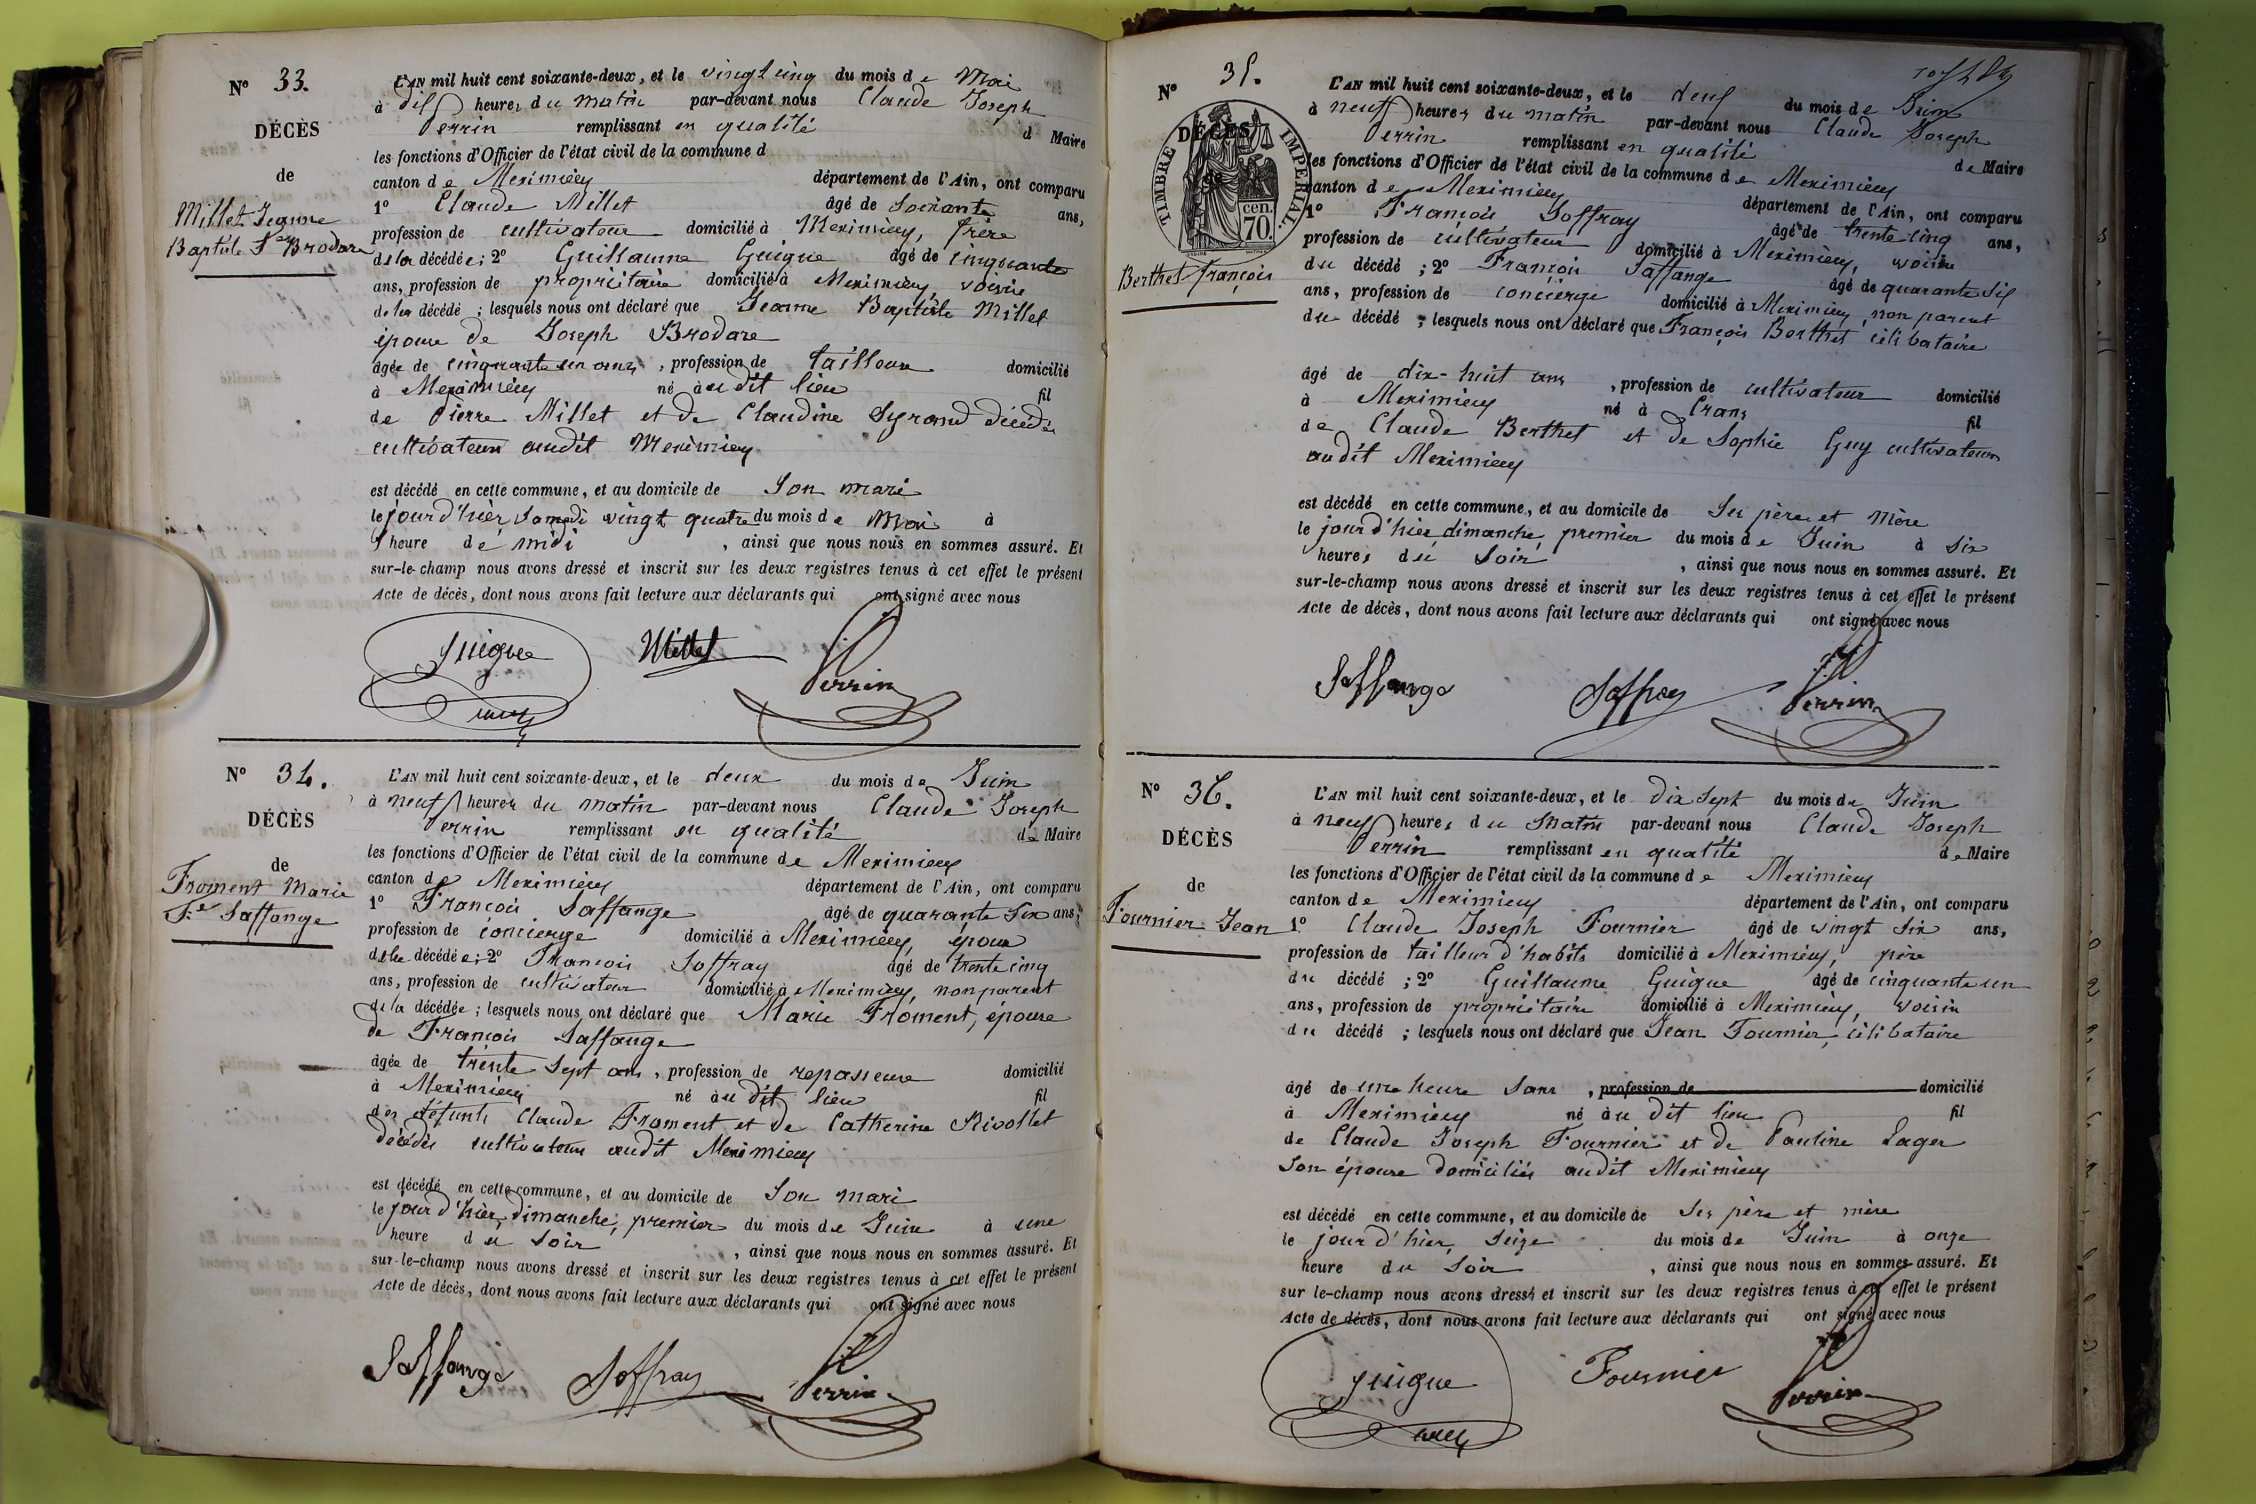 Nº 33.
DÉCÈS
de
Millet Jeanne
Baptiste fe Brodare
L'AN mil huit cent soixante-deux, et le vingt cinq du mois de Mai
à dix heures du matin par-devant nous Claude Joseph
Perrin remplissant en qualité d Maire
les fonctions d'Officier de l'état civil de la commune d
canton de Meximieux département de l'Ain, ont comparu
1º Claude Millet âgé de soixante ans,
profession de cultivateur domicilié à Meximieux, frère
de la décédée; 2º Guillaume Guigue âgé de cinquante
ans, profession de propriétaire domicilié à Meximieux, voisin
de la décédé; lesquels nous ont déclaré que Jeanne Baptiste Millet
épouse de Joseph Brodare
âgée de cinquante un ans, profession de tailleuse domicilié
à Meximieux né audit lieu fil
de Pierre Millet et de Claudine Syrand décédés
cultivateurs audit Meximieux
est décédé en cette commune, et au domicile de son mari
le jour d'hier samedi vingt quatre du mois de Mai à
heure de midi, ainsi que nous nous en sommes assuré. Et
sur-le-champ nous avons dressé et inscrit sur les deux registres tenus à cet effet le présent
Acte de décès, dont nous avons fait lecture aux déclarants qui ont signé avec nous
Guigue Millet Perrin
Nº 34.
DÉCÈS
de
Froment Marie
fe Saffange
L'AN mil huit cent soixante-deux, et le deux du mois de Juin
à neuf heures du matin par-devant nous Claude Joseph
Perrin remplissant en qualité de Maire
les fonctions d'Officier de l'état civil de la commune de Meximieux
canton de Meximieux département de l'Ain, ont comparu
1º François Saffange âgé de quarante six ans,
profession de concierge domicilié à Meximieux, époux
de la décédée; 2º François Joffray âgé de trente cinq
ans, profession de cultivateur domicilié à Meximieux, non parent
de la décédée; lesquels nous ont déclaré que Marie Froment, épouse
de François Saffange
âgée de trente sept ans, profession de repasseuse domicilié
à Meximieux né audit lieu fil
des défunts Claude Froment et de Catherine Rivollet
décédés cultivateurs audit Meximieux
est décédé en cette commune, et au domicile de son mari
le jour d'hier, dimanche, premier du mois de Juin à une
heure du soir, ainsi que nous nous en sommes assuré. Et
sur-le-champ nous avons dressé et inscrit sur les deux registres tenus à cet effet le présent
Acte de décès, dont nous avons fait lecture aux déclarants qui ont signé avec nous
Saffange Joffray Perrin
Nº 35.
TIMBRE IMPÉRIAL.
DÉCÈS
de
cen. 70.
Berthet françois
L'AN mil huit cent soixante-deux, et le deux du mois de Juin
à neuf heures du matin par-devant nous Claude Joseph
Perrin remplissant en qualité de Maire
les fonctions d'Officier de l'état civil de la commune de Meximieux
canton de Meximieux département de l'Ain, ont comparu
1º François Joffray âgé de trente cinq ans,
profession de cultivateur domicilié à Meximieux, voisin
du décédé; 2º François Saffange âgé de quarante six
ans, profession de concierge domicilié à Meximieux, non parent
du décédé; lesquels nous ont déclaré que François Berthet célibataire
âgé de dix-huit ans, profession de cultivateur domicilié
à Meximieux né à Crans fil
de Claude Berthet et de Sophie Guy cultivateurs
audit Meximieux
est décédé en cette commune, et au domicile de ses père et mère
le jour d'hier, dimanche, premier du mois de Juin à six
heures du soir, ainsi que nous nous en sommes assuré. Et
sur-le-champ nous avons dressé et inscrit sur les deux registres tenus à cet effet le présent
Acte de décès, dont nous avons fait lecture aux déclarants qui ont signé avec nous
Saffange Joffray Perrin
Nº 36.
DÉCÈS
de
Fournier Jean
L'AN mil huit cent soixante-deux, et le dix sept du mois de Juin
à neuf heures du matin par-devant nous Claude Joseph
Perrin remplissant en qualité de Maire
les fonctions d'Officier de l'état civil de la commune de Meximieux
canton de Meximieux département de l'Ain, ont comparu
1º Claude Joseph Fournier âgé de vingt six ans,
profession de tailleur d'habits domicilié à Meximieux, père
du décédé; 2º Guillaume Guigue âgé de cinquante un
ans, profession de propriétaire domicilié à Meximieux, voisin
du décédé; lesquels nous ont déclaré que Jean Fournier, célibataire
âgé de une heure sans, profession de domicilié
à Meximieux né audit lieu fil
de Claude Joseph Fournier et de Pauline Lager
son épouse domiciliés audit Meximieux
est décédé en cette commune, et au domicile de ses père et mère
le jour d'hier, seize du mois de Juin à onze
heure du soir, ainsi que nous nous en sommes assuré. Et
sur le-champ nous avons dressé et inscrit sur les deux registres tenus à cet effet le présent
Acte de décès, dont nous avons fait lecture aux déclarants qui ont signé avec nous
Guigue Fournier Perrin